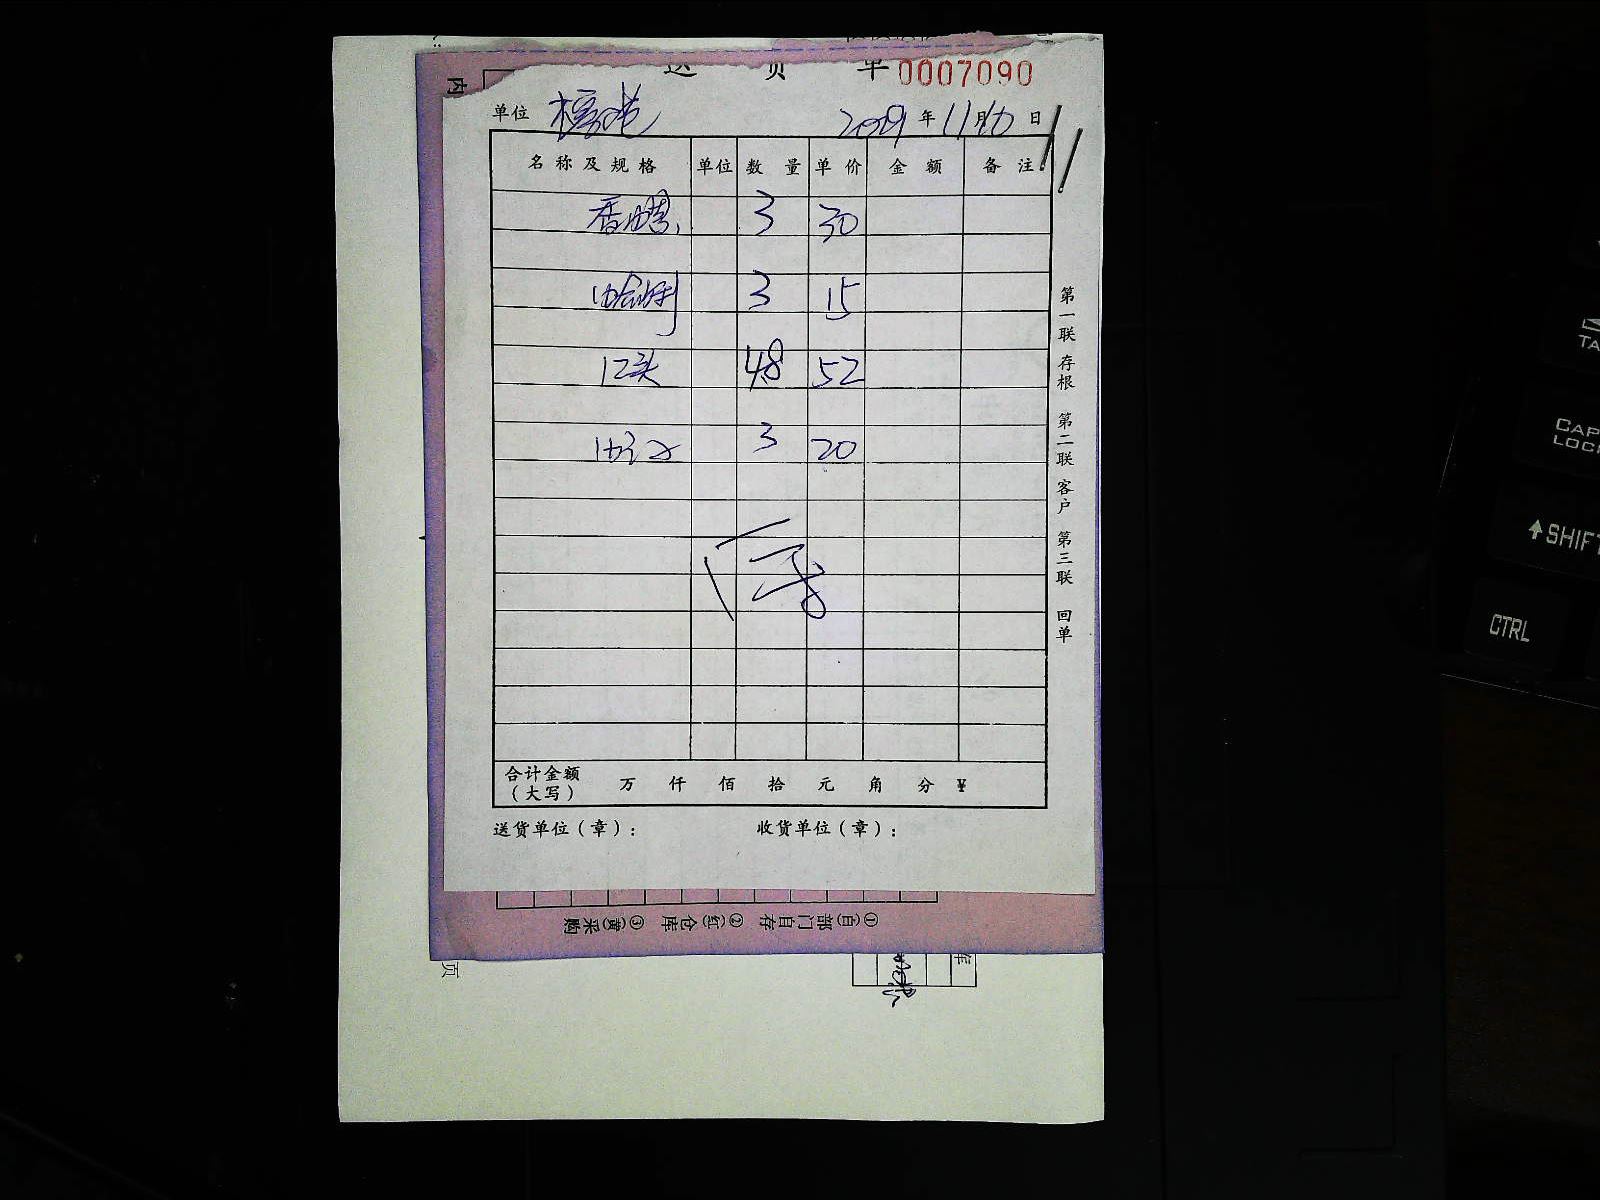 送 货 单 0007090
单位 2019 年 11 月 10 日
名称及规格 单位 数量 单价 金额 备注
香螺 3 30
3 15
12头 4.8 52
3 20
合计金额（大写） 万 仟 佰 拾 元 角 分 ¥
送货单位（章）： 收货单位（章）：
第一联 存根 第二联 客户 第三联 回单
内
①(白)部门自存 ②(红)仓库 ③(黄)采购
页
TA
CAP
LOC
SHIFT
CTRL